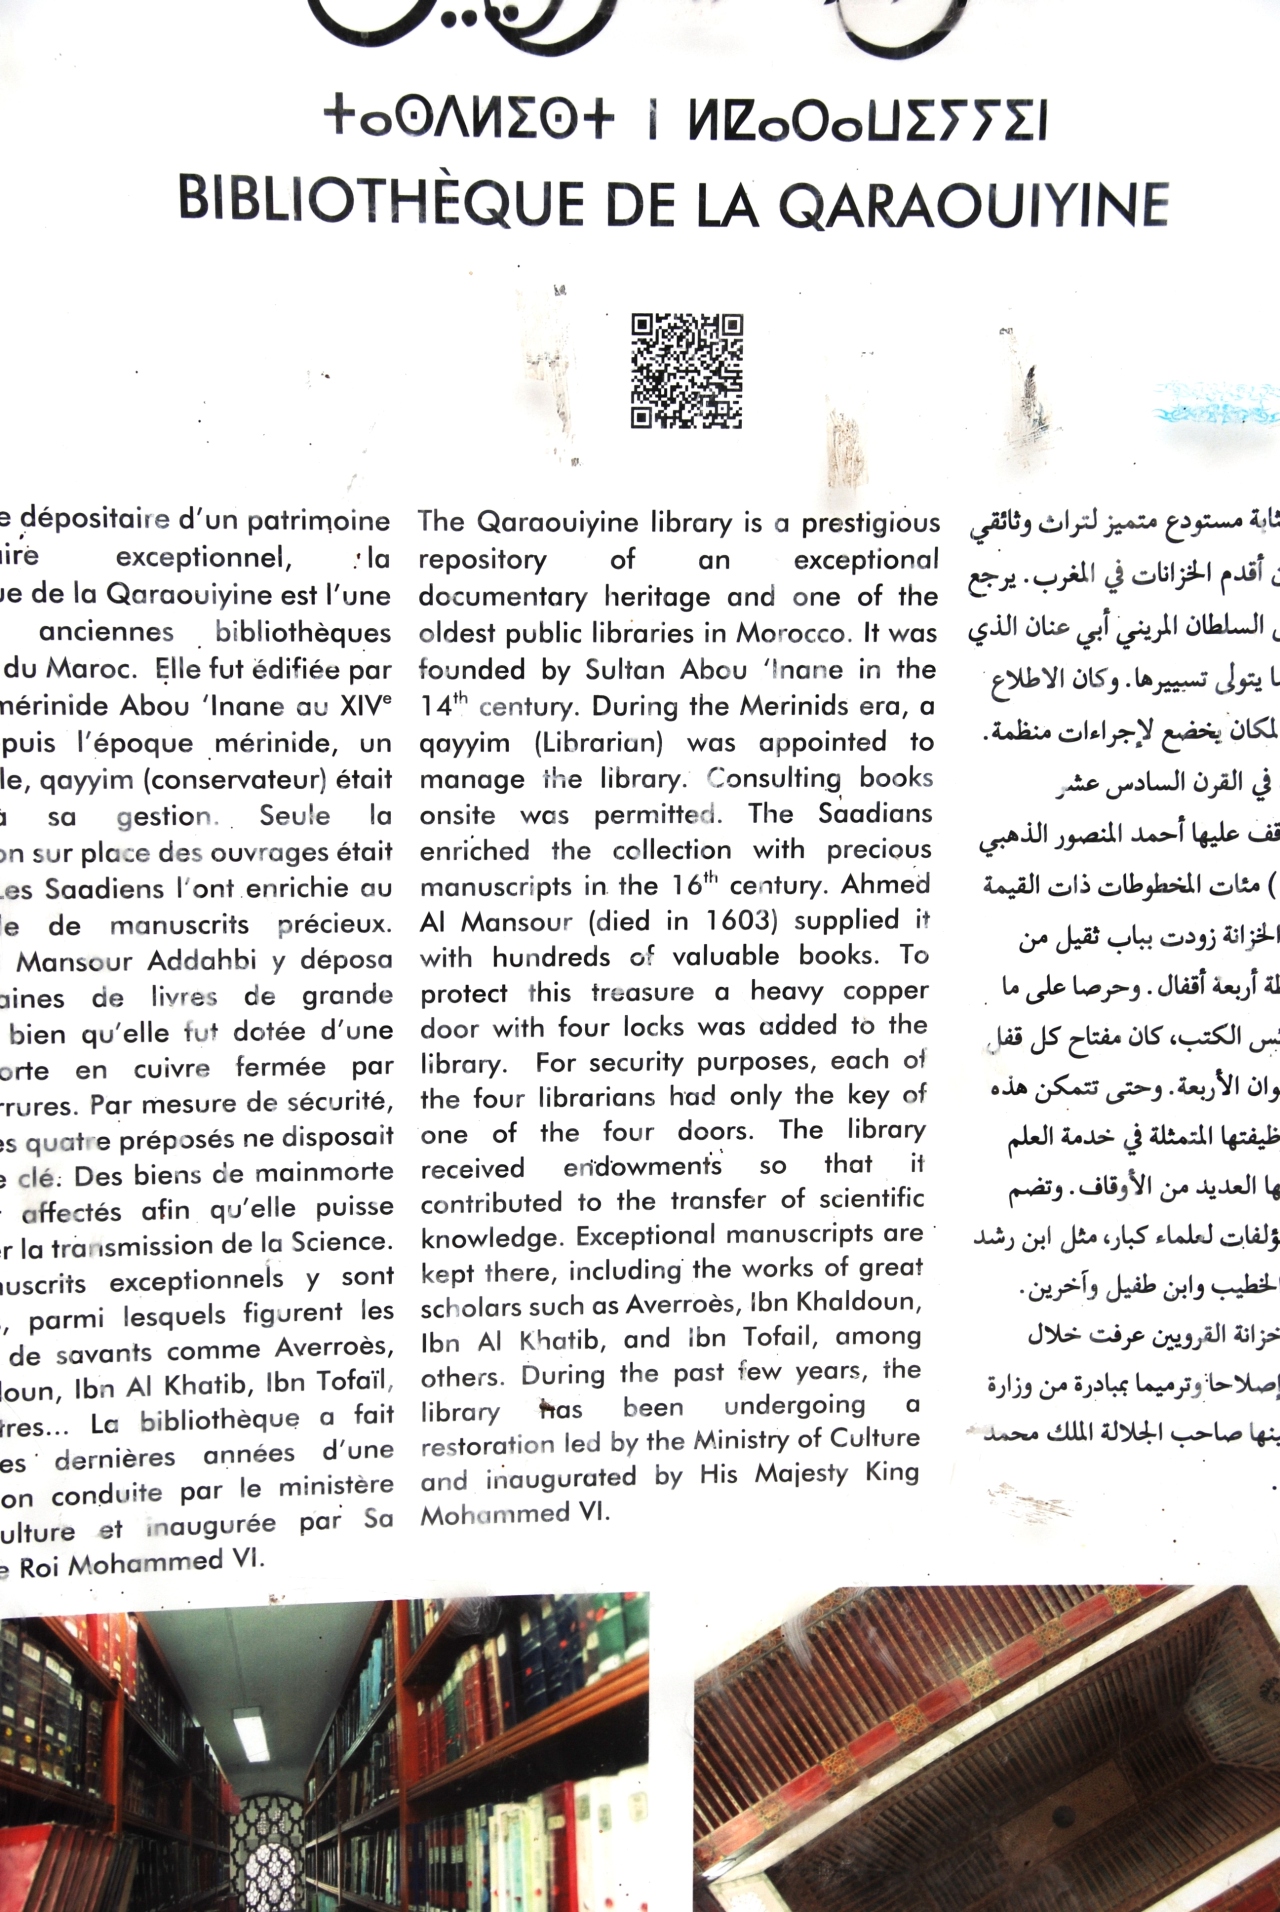 ⵜⴰⵙⴷⵍⵉⵙⵜ ⵏ ⵍⵇⴰⵔⴰⵡⵉⵢⵢⵉⵏ
BIBLIOTHÈQUE DE LA QARAOUIYINE
dépositaire d'un patrimoine
exceptionnel, la
de la Qaraouiyine est l'une
anciennes bibliothèques
du Maroc. Elle fut édifiée par
mérinide Abou 'Inane au XIVe
puis l'époque mérinide, un
le, qayyim (conservateur) était
à sa gestion. Seule la
on sur place des ouvrages était
Les Saadiens l'ont enrichie au
de manuscrits précieux.
Mansour Addahbi y déposa
aines de livres de grande
bien qu'elle fut dotée d'une
orte en cuivre fermée par
rrures. Par mesure de sécurité,
es quatre préposés ne disposait
e clé. Des biens de mainmorte
affectés afin qu'elle puisse
er la transmission de la Science.
nuscrits exceptionnels y sont
, parmi lesquels figurent les
de savants comme Averroès,
doun, Ibn Al Khatib, Ibn Tofaïl,
tres... La bibliothèque a fait
es dernières années d'une
on conduite par le ministère
ulture et inaugurée par Sa
e Roi Mohammed VI.
The Qaraouiyine library is a prestigious
repository of an exceptional
documentary heritage and one of the
oldest public libraries in Morocco. It was
founded by Sultan Abou 'Inane in the
14th century. During the Merinids era, a
qayyim (Librarian) was appointed to
manage the library. Consulting books
onsite was permitted. The Saadians
enriched the collection with precious
manuscripts in the 16th century. Ahmed
Al Mansour (died in 1603) supplied it
with hundreds of valuable books. To
protect this treasure a heavy copper
door with four locks was added to the
library. For security purposes, each of
the four librarians had only the key of
one of the four doors. The library
received endowments so that it
contributed to the transfer of scientific
knowledge. Exceptional manuscripts are
kept there, including the works of great
scholars such as Averroès, Ibn Khaldoun,
Ibn Al Khatib, and Ibn Tofail, among
others. During the past few years, the
library has been undergoing a
restoration led by the Ministry of Culture
and inaugurated by His Majesty King
Mohammed VI.
مستودع متميز لتراث وثائقي
أقدم الخزانات في المغرب. يرجع
السلطان المريني أبي عنان الذي
يتولى تسييرها. وكان الاطلاع
لمكان يخضع لإجراءات منظمة.
في القرن السادس عشر
قف عليها أحمد المنصور الذهبي
) مئات المخطوطات ذات القيمة
الخزانة زودت بباب ثقيل من
أربعة أقفال. وحرصا على ما
الكتب، كان مفتاح كل قفل
وان الأربعة. وحتى تتمكن هذه
ظيفتها المتمثلة في خدمة العلم
ها العديد من الأوقاف. وتضم
ؤلفات لعلماء كبار، مثل ابن رشد
الخطيب وابن طفيل وآخرين.
خزانة القرويين عرفت خلال
إصلاحا وترميما بمبادرة من وزارة
صاحب الجلالة الملك محمد